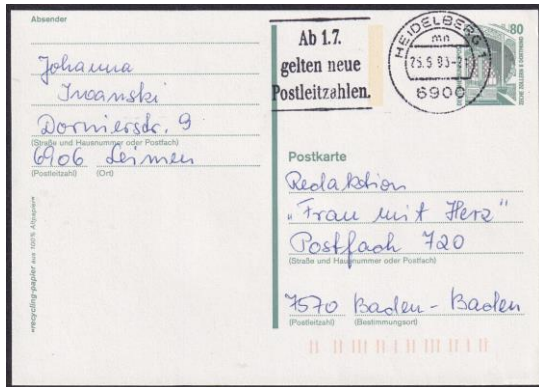 Absender
Johanna
Iwanski
Dornierstr. 9
(Straße und Hausnummer oder Postfach)
6906 Leimen
(Postleitzahl) (Ort)
»recycling-papier aus 100% Altpapier«
Ab 1.7.
gelten neue
Postleitzahlen.
HEIDELBERG 1
mn
25.5.93-21
6900
80
Postkarte
Redaktion
„Frau mit Herz"
Postfach 720
(Straße und Hausnummer oder Postfach)
7570 Baden-Baden
(Postleitzahl) (Bestimmungsort)